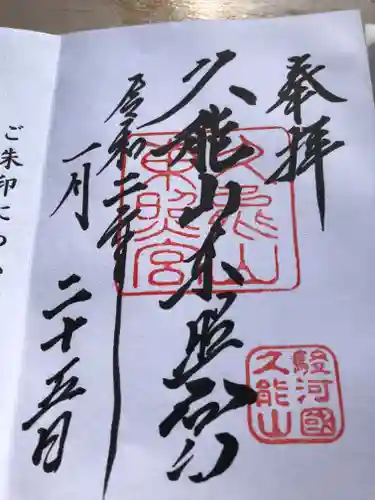 奉拝
久能山東照宮
令和二年
一月
二十五日
久能山
東照宮
駿河國
久能山
ご朱印につ